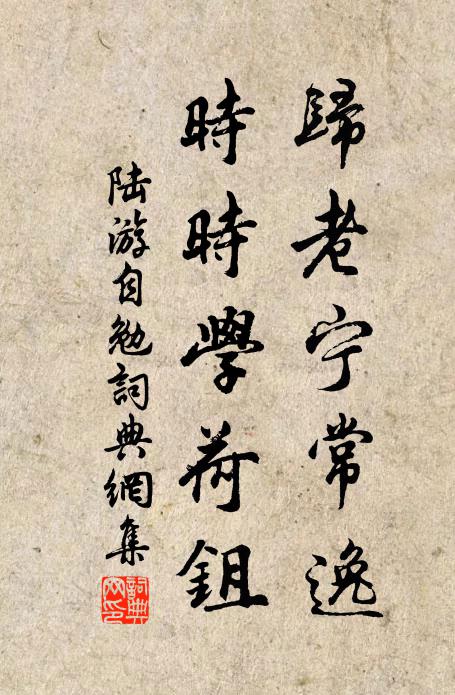 歸老宁常逸
時時學荷鉏
陆游自勉詞典網集
詞典网印